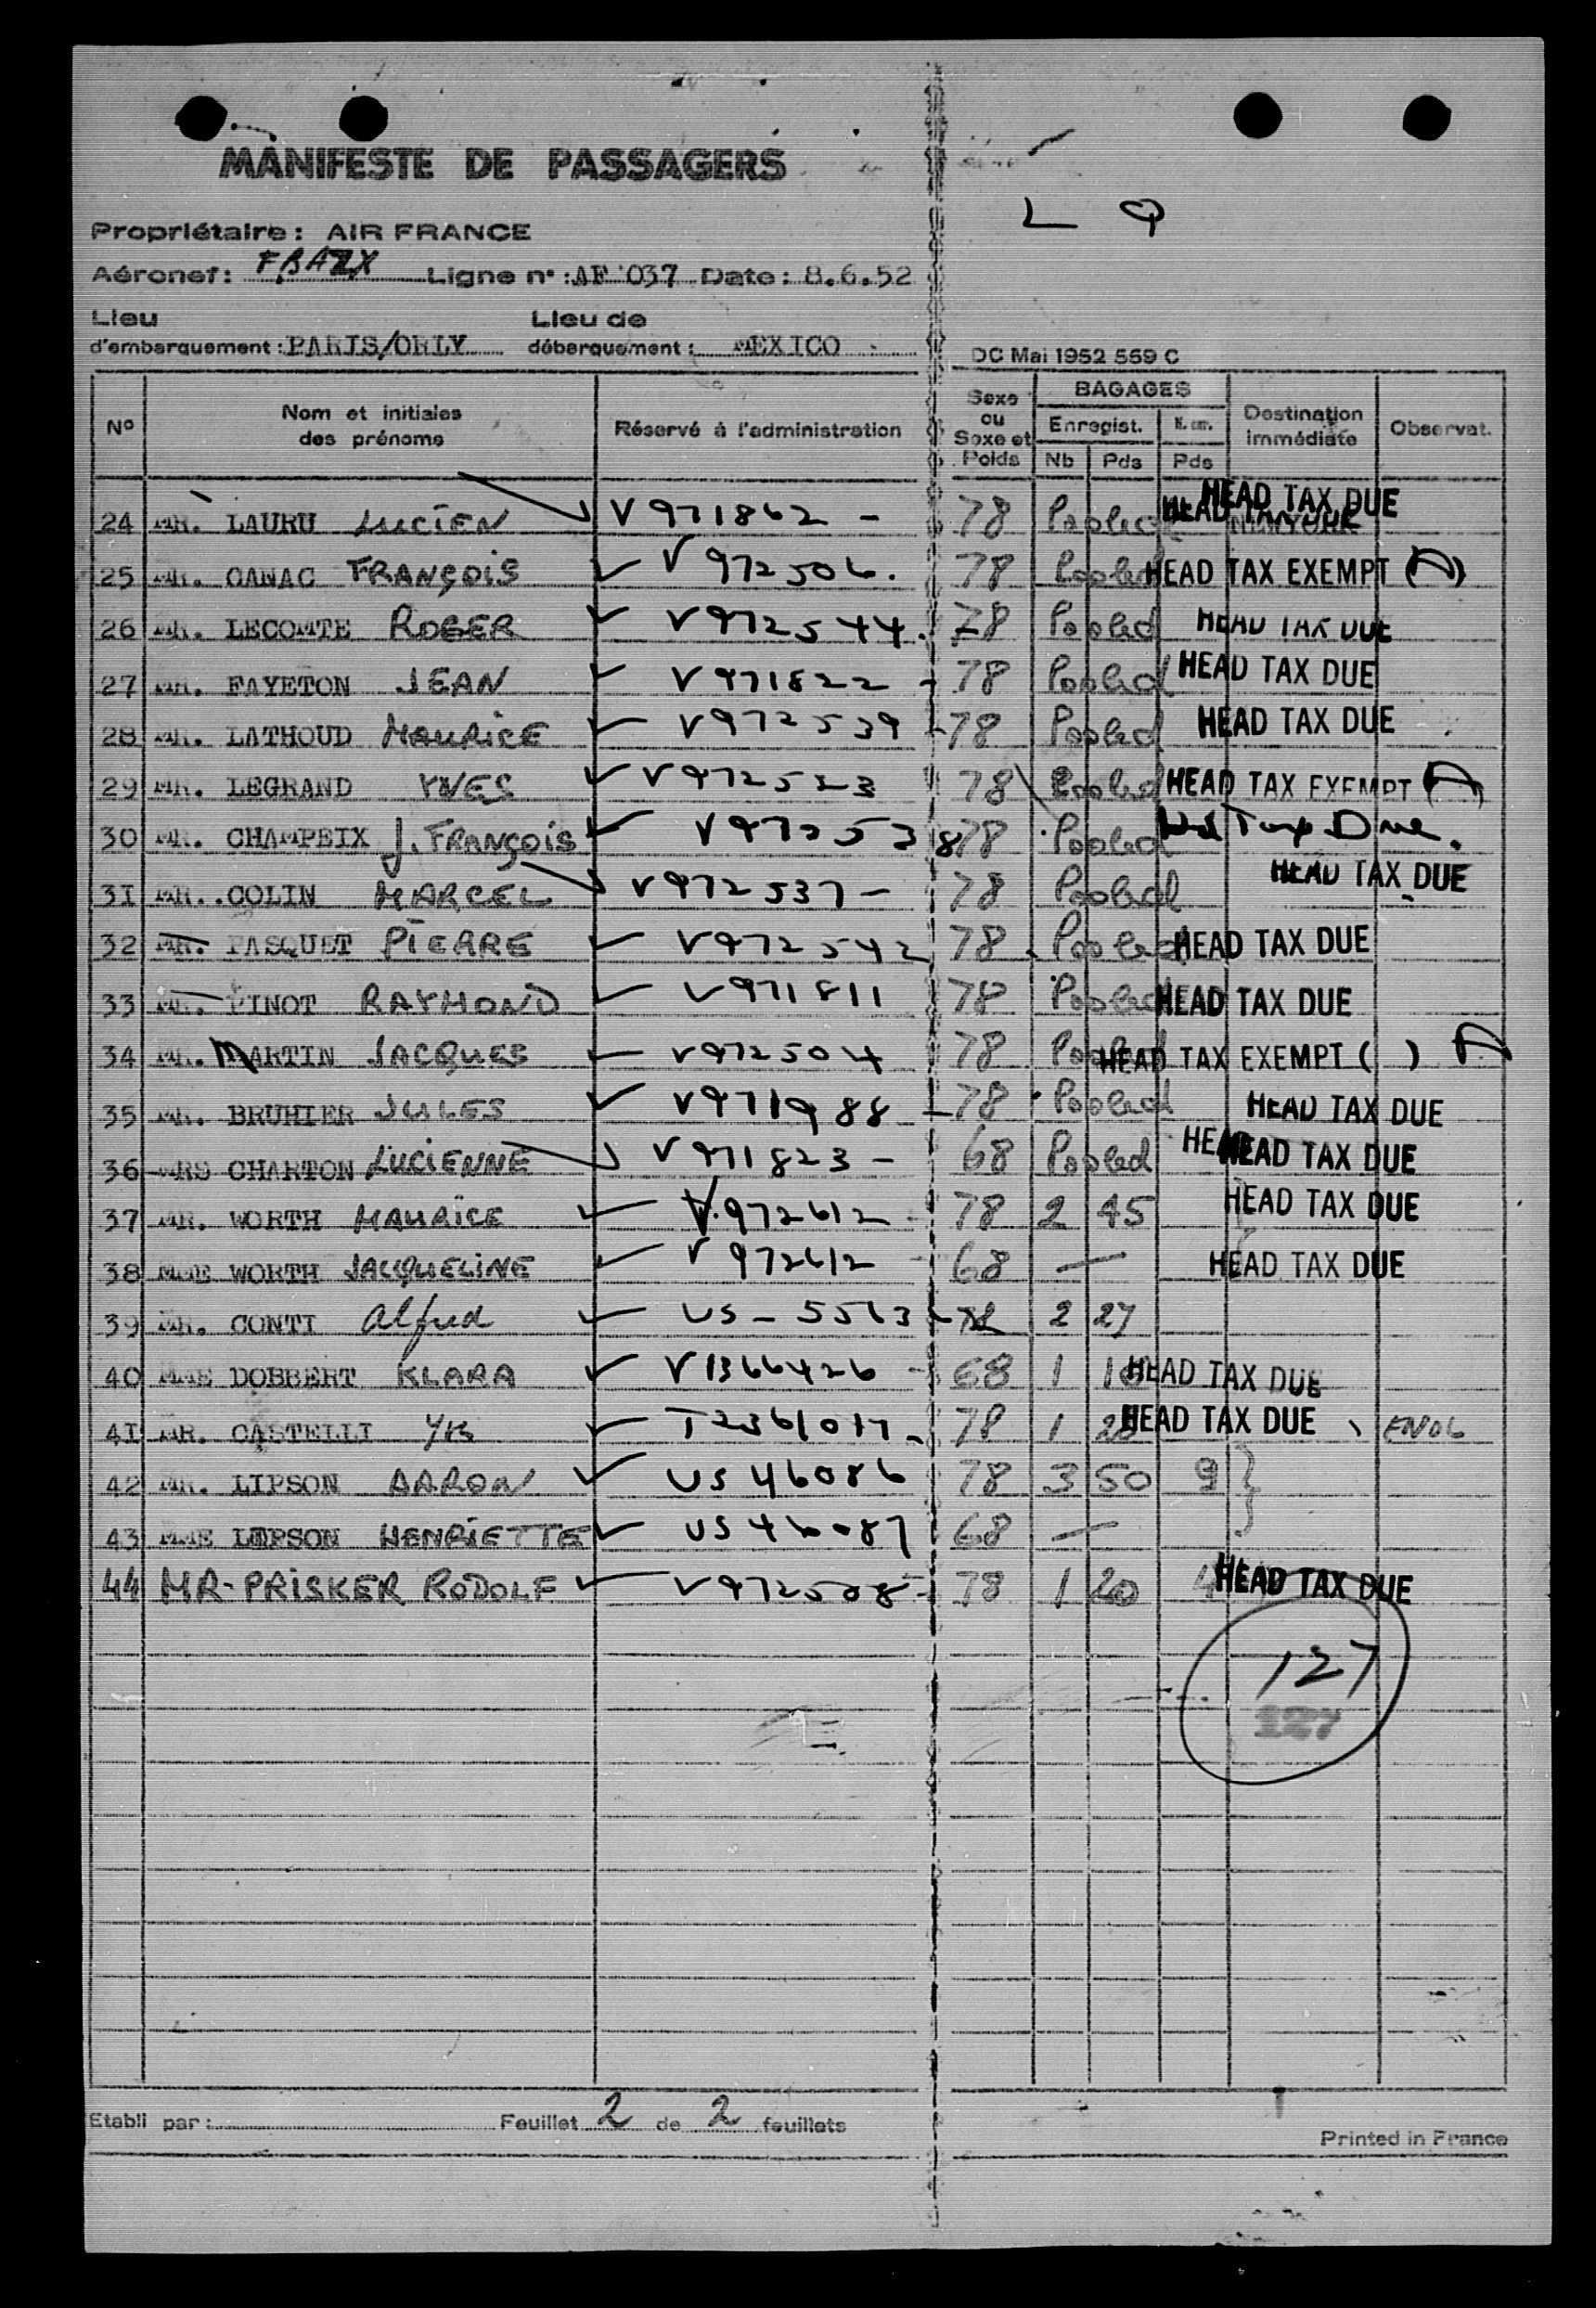 MANIFESTE DE PASSAGERS
L Q
Propriétaire : AIR FRANCE
Aéronef : FBAZX Ligne n° : AF 037 Date : 8.6.52
Lieu d'embarquement : PARIS/ORLY Lieu de débarquement : MEXICO
DC Mai 1952 559 C
N° Nom et initiales des prénoms Réservé à l'administration Sexe ou Sexe et Poids BAGAGES Enregist. Nb Pds Pds Destination immédiate Observat.
24 MR. LAURU LUCIEN V971862 - 78 Pooled HEAD TAX DUE
25 MR. CANAC FRANÇOIS V972506. 78 Pooled HEAD TAX EXEMPT (A)
26 MR. LECOMTE ROGER V972544. 78 Pooled HEAD TAX DUE
27 MR. FAYETON JEAN V971822 - 78 Pooled HEAD TAX DUE
28 MR. LATHOUD MAURICE V972539 - 78 Pooled HEAD TAX DUE
29 MR. LEGRAND YVES V972523 78 Pooled HEAD TAX EXEMPT (A)
30 MR. CHAMPEIX J. FRANÇOIS V972538 78 Pooled Hd Tax Due.
31 MR. COLIN MARCEL V972537 - 78 Pooled HEAD TAX DUE
32 MR. PASQUET PIERRE V972542 78 Pooled HEAD TAX DUE
33 MR. PINOT RAYMOND V971811 78 Pooled HEAD TAX DUE
34 MR. MARTIN JACQUES V972504 78 Pooled HEAD TAX EXEMPT ( ) A
35 MR. BRUHIER JULES V971988 - 78 Pooled HEAD TAX DUE
36 MRS CHARTON LUCIENNE V971823 - 68 Pooled HEAD TAX DUE
37 MR. WORTH MAURICE V.972612 - 78 2 45 HEAD TAX DUE
38 MME WORTH JACQUELINE V972612 - 68 — HEAD TAX DUE
39 MR. CONTI Alfred US - 5563 - 78 2 27
40 MME DOBBERT KLARA V1366426 - 68 1 HEAD TAX DUE
41 MR. CASTELLI T2361017 - 78 1 HEAD TAX DUE
42 MR. LIPSON AARON US 46086 78 3 50 9 }
43 MME LIPSON HENRIETTE US 46087 68 —
44 MR-PRISKER RODOLF V972508 - 78 1 20 4 HEAD TAX DUE
127
127
Etabli par : Feuillet 2 de 2 feuillets
Printed in France